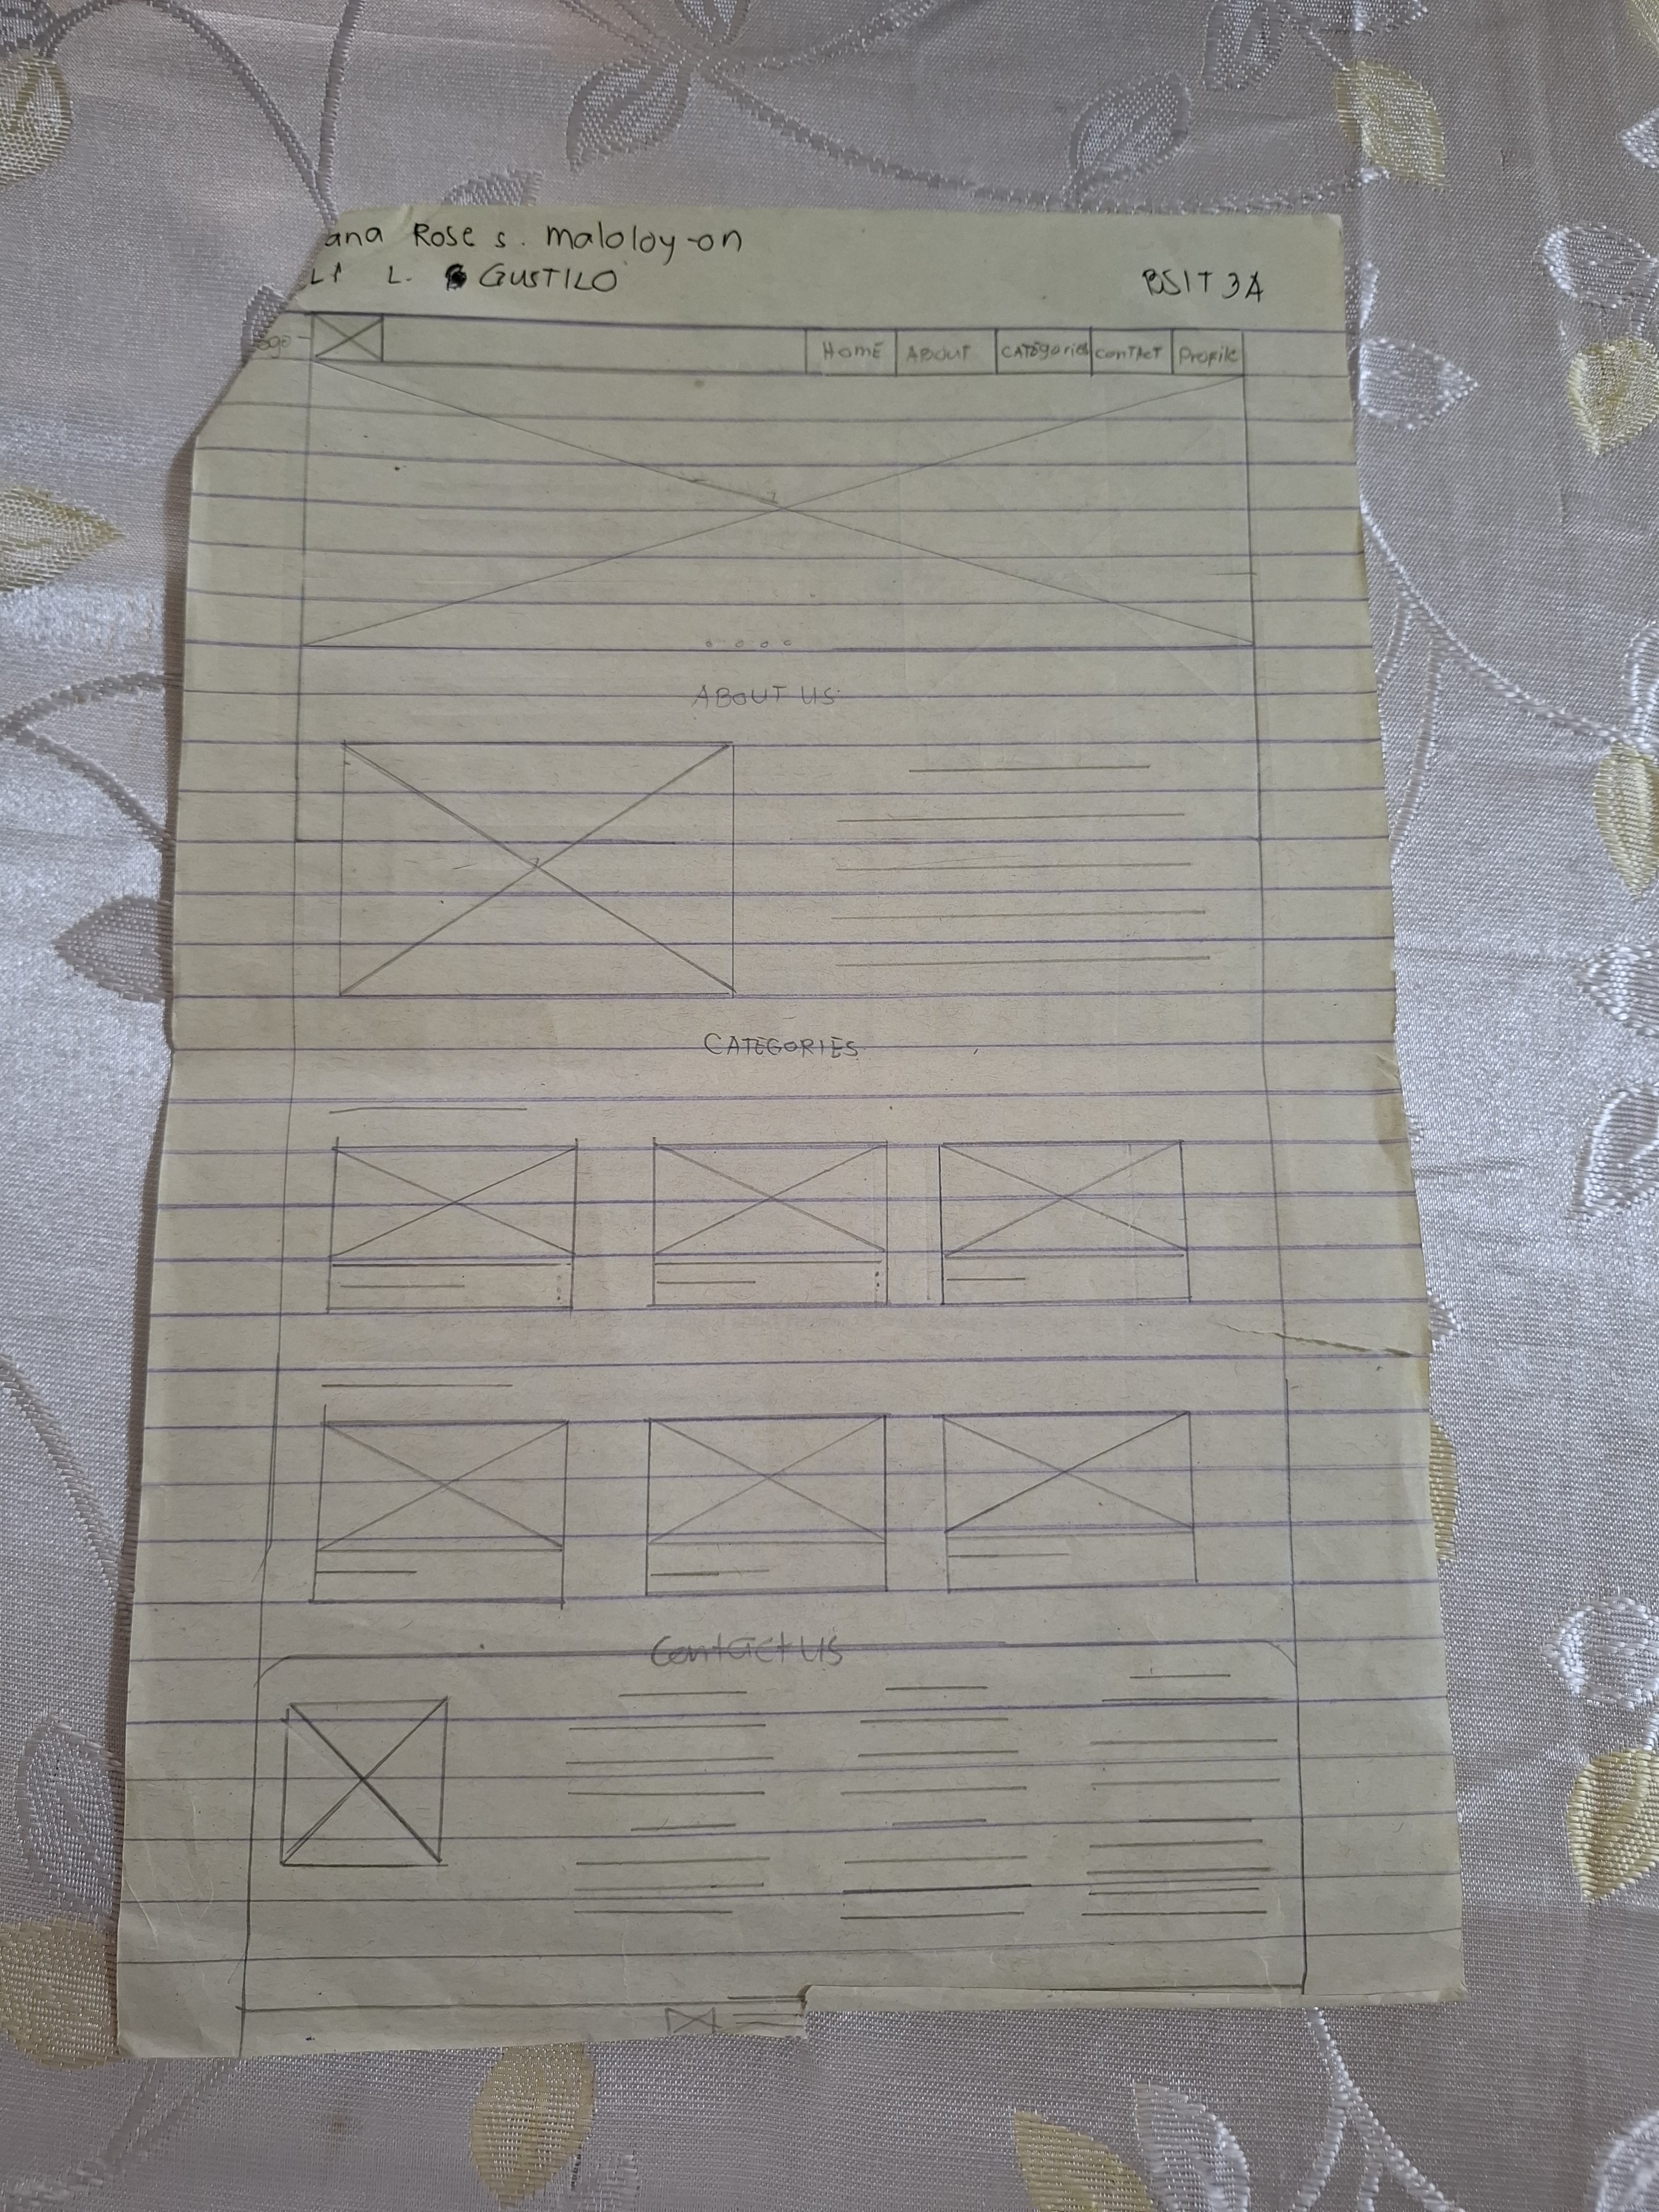 ana Rose s. maloloy-on
L. GUSTILO
BSIT 3A
ogo
HOME
ABOUT
CATEgories
conTAcT
Profile
ABOUT US
CATEGORIES
Contact Us